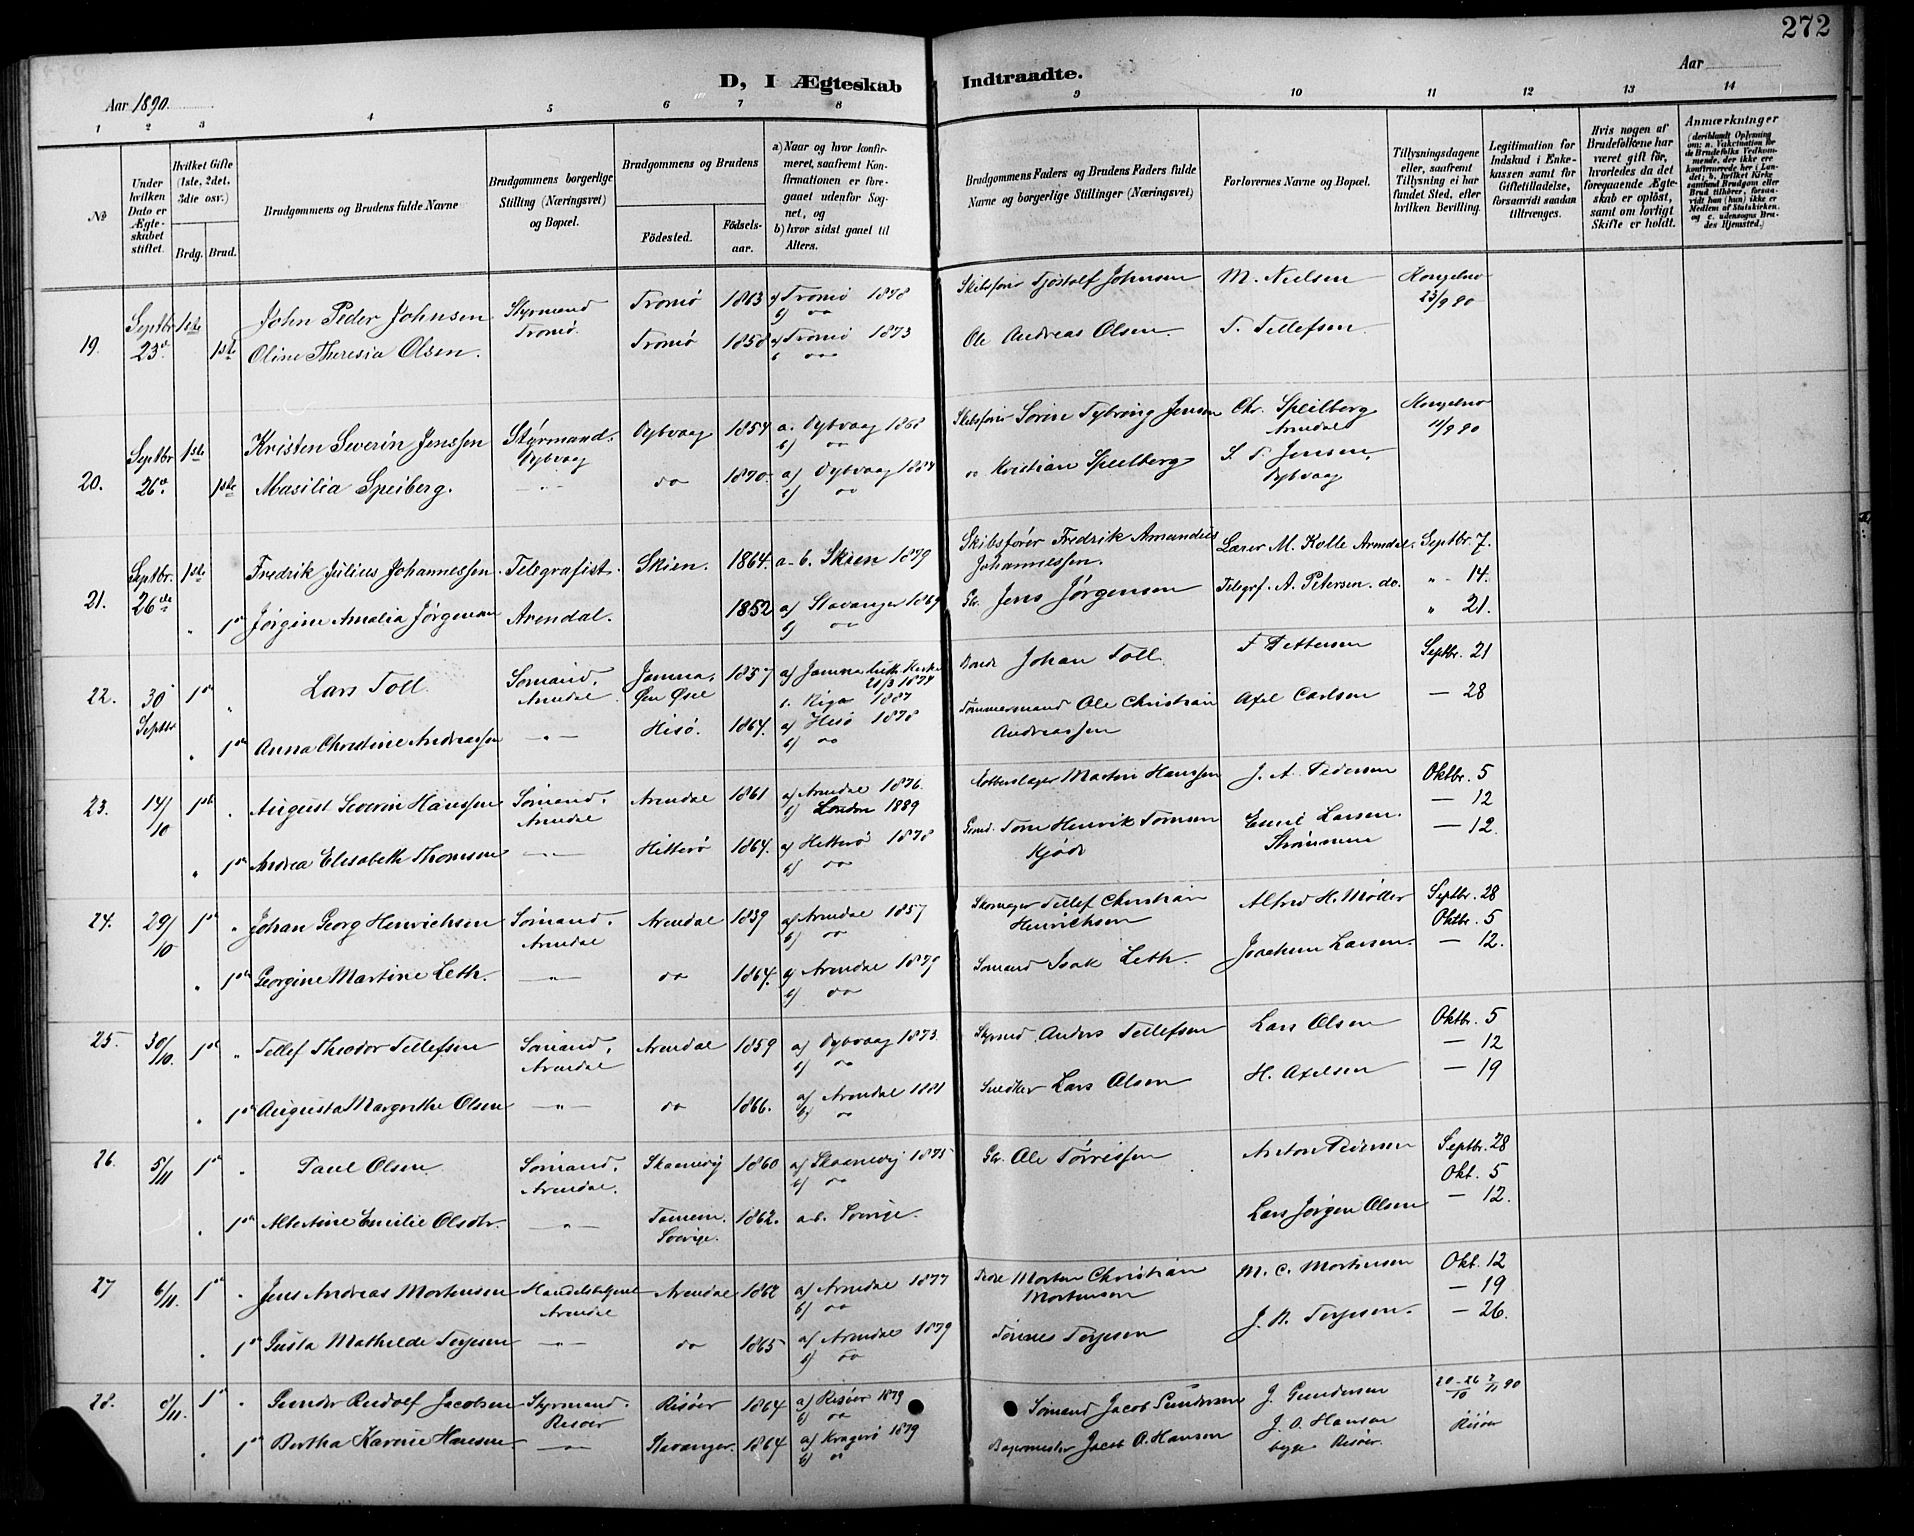 272
D, I Ægteskab Indtraadte.
Aar 1890. Aar
1 2 3 4 5 6 7 8 9 10 11 12 13 14
No
Under hvilken Dato er Ægteskabet stiftet.
Hvilket Gifte (1ste, 2det, 3die osv.)
Brdg. Brud.
Brudgommens og Brudens fulde Navne
Brudgommens borgerlige Stilling (Næringsvei) og Bopæl.
Brudgommens og Brudens
Födested. Födselsaar.
a) Naar og hvor konfirmeret, saafremt Konfirmationen er foregaaet udenfor Sognet, og
b) hvor sidst gaaet til Alters.
Brudgommens Faders og Brudens Faders fulde Navne og borgerlige Stillinger (Næringsvei)
Forlovernes Navne og Bopæl.
Tillysningsdagene eller, saafremt Tillysning ei har fundet Sted, efter hvilken Bevilling.
Legitimation for Indskud i Enkekassen samt for Giftetilladelse, forsaavidt saadan tiltrænges.
Hvis nogen af Brudefolkene har været gift för, hvorledes da det foregaaende Ægteskab er oplöst, samt om lovligt Skifte er holdt.
Anmærkninger
(deriblandt Oplysning om: a. Vakcination for de Brudefolks Vedkommende, der ikke ere konfirmerede her i Landet, b. hvilket Kirkesamfund Brudgom eller Brud tilhörer, forsaavidt han (hun) ikke er Medlem af Statskirken, og c. udensogns Brudes Hjemsted.)
19. Septbr 23de 1ste John Peder Johnsen Styrmand Tromö Tromö 1863 a) Tromö 1878 b) do Skibsförer Tjöstolf Johnsen M. Nielsen Kongebrev 23/9 90
1ste Oline Theresia Olsen. Tromö 1858 a) Tromö 1873 b) do Ole Andreas Olsen T. Tellefsen
20. Septbr 26de 1ste Kristen Severin Jenssen Styrmand. Dybvaag Dybvaag 1854 a. Dybvaag 1868 b) do Skibsförer Sörine Tybring Jensen Chr. Speilberg Arendal Kongebrev 11/9 90
1ste Masilia Speiberg. do 1870. a) Dybvaag 1884 b) do do Kristian Speilberg S. T. Jensen, Dybvaag
21. Septbr. 26de 1ste Fredrik Julius Johannessen. Telegrafist. Skien. 1864. a-b. Skien 1879 Skibsförer Fredrik Amandius Johannessen. Lærer M. Kolle Arendal. Septbr. 7.
1ste Jörgine Amalia Jörgensen Arendal. 1852 a) Stavanger 1869 b) do Gbr. Jens Jörgensen Telegrf. A. Petersen. do. " 14.
" 21.
22. 30 Septbr 1ste Lars Toll. Sömand, Arendal Jamma, Øen Øsel 1857 a) Jamma 21/3 1877 b. Riga 1887 Bonde Johan Toll. F Pettersen Septbr. 21
1ste Anna Christine Andreassen Hisö. 1864. a) Hisö 1878 b) do Tömmermand Ole Christian Andreassen Axel Carlsen — 28
23. 14/10 1ste August Severin Hanssen Sömand, Arendal Arendal 1861 a) Arendal 1876. b) London 1889 Martin Hanssen J. A. Pedersen Oktbr. 5
— 12
1ste Andrea Elisabeth Thomsen Hitterö 1864. a) Hitterö 1878 b) do Tom Henrik Tomsen Kjöde Emil Larsen. Strömmen — 12.
24. 29/10 1ste Johan Georg Henrichsen Sömand, Arendal Arendal 1839 a) Arendal 1857 b) do Skomager Tellef Christian Henrichsen Alfred H. Möller Septbr. 28
Oktbr. 5
1ste Georgine Martine Leth. do 1864. a) Arendal 1879 b) do Sömand Isak Leth. Joachim Larsen. — 12.
25. 30/10 1ste Tellef Theodor Tellefsen Sömand, Arendal Arendal 1859 a) Dybvaag 1873. b) do Styrmd Anders Tellefsen Lars Olsen Oktbr. 5
— 12
1ste Augusta Margrethe Olsen do 1866. a) Arendal 1881 b) do Snedker Lars Olsen H. Axelsen — 19
26. 5/11 1ste Paul Olsen Sömand, Arendal. Skaanevig 1860 a) Skaanevig 1875 b) do Gbr. Ole Törrissen Anton Pedersen Septbr. 28
Okt. 5
1ste Albertine Emilie Olsdtr. Tanem. Sverige. 1862. ab. Sverige. Lars Jörgen Olsen — 12.
27 6/11. 1ste Jens Andreas Mortensen Handelsbetjent Arendal Arendal 1862 a) Arendal 1877 b) do Morten Christian Mortensen M. C. Mortensen Okt. 12
— 19
1ste Gusta Mathilde Terjesen do 1865 a) Arendal 1879 b) do Tönnes Terjesen J. N. Terjesen. — 26.
28. 8/11. 1ste Gunder Rudolf Jacobsen Styrmand. Risöer Risöer 1864 a) Risöer 1879 b) do Sömand Jacob Gundersen J. Gundersen 20-26/10 2/11 90
1ste Bertha Karine Hansen Stavanger. 1864 a) Kragerö 1879 b) do Jacob A. Hansen J. A. Hansen begge Risöer. Risöer